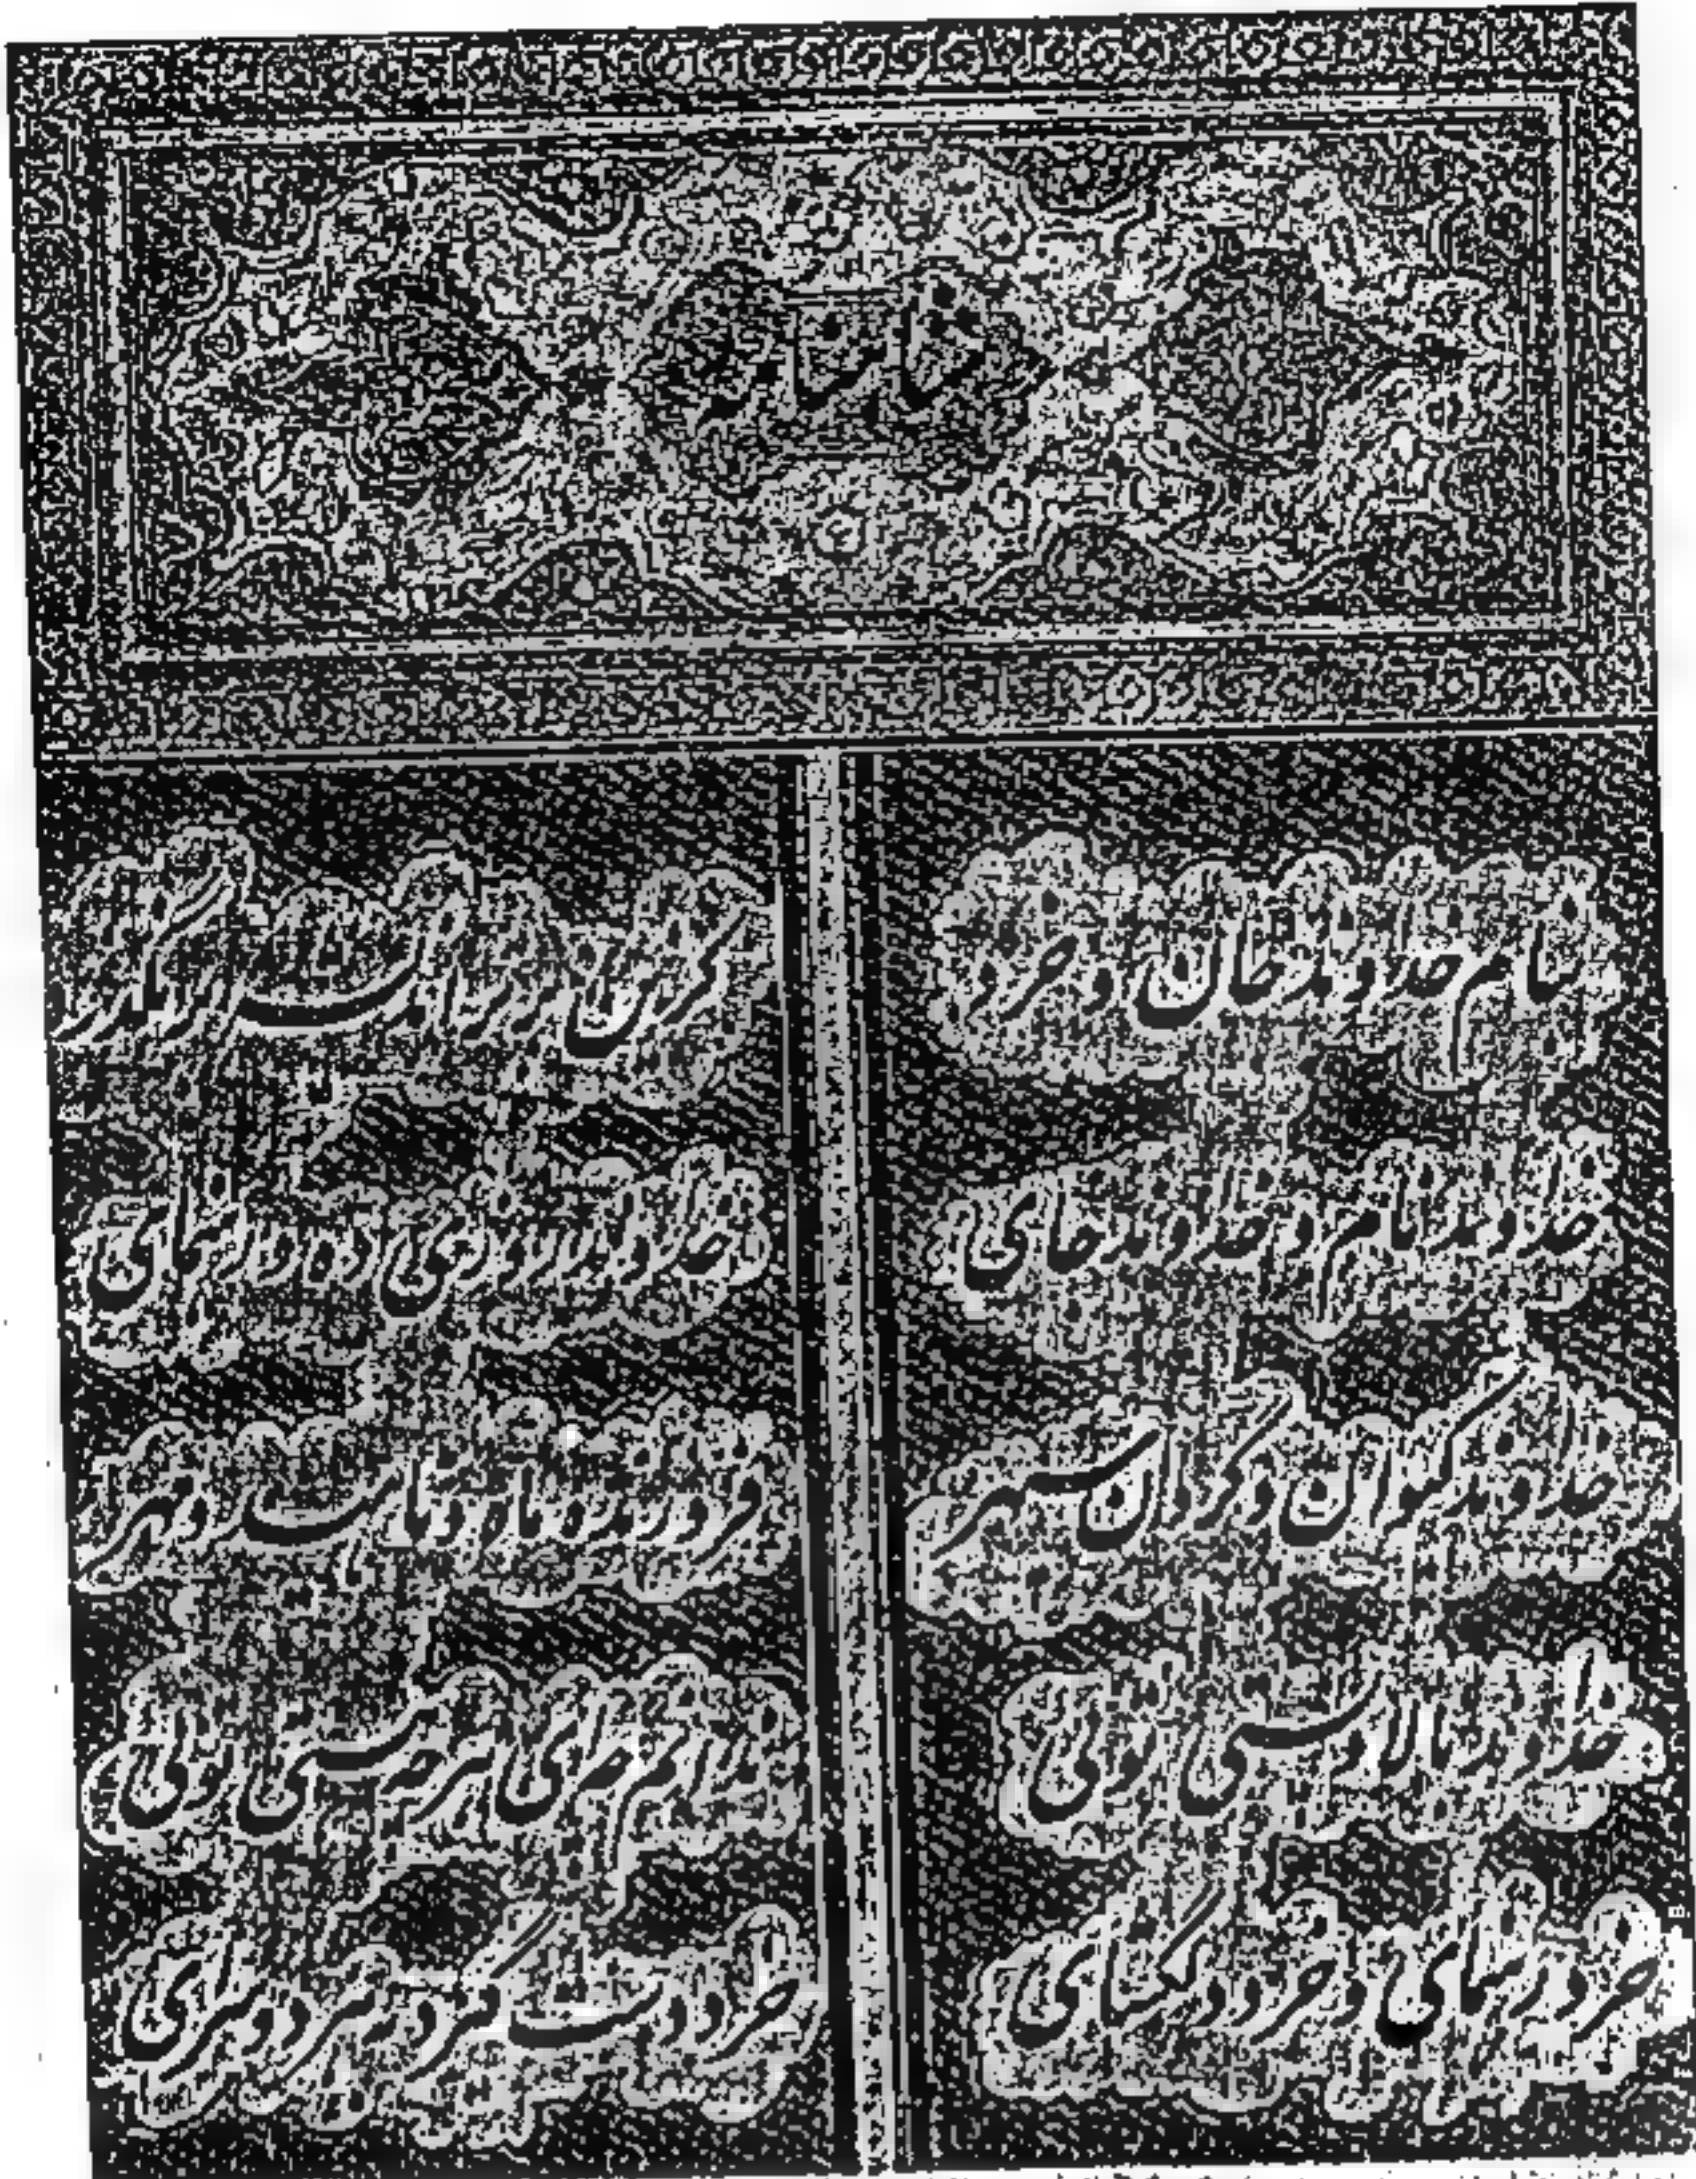 بنام خداوند جان و خرد
کزین برتر اندیشه برنگذرد
خداوند نام و خداوند جای
خداوند روزی ده و رهنمای
خداوند کیوان و گردان سپهر
فروزنده ماه و ناهید و مهر
خداوند بالا و پستی توئی
ندانم چه ای هر چه هستی توئی
خرد رهنمای و خرد دلگشای
خرد دست گیرد بهر دو سرای